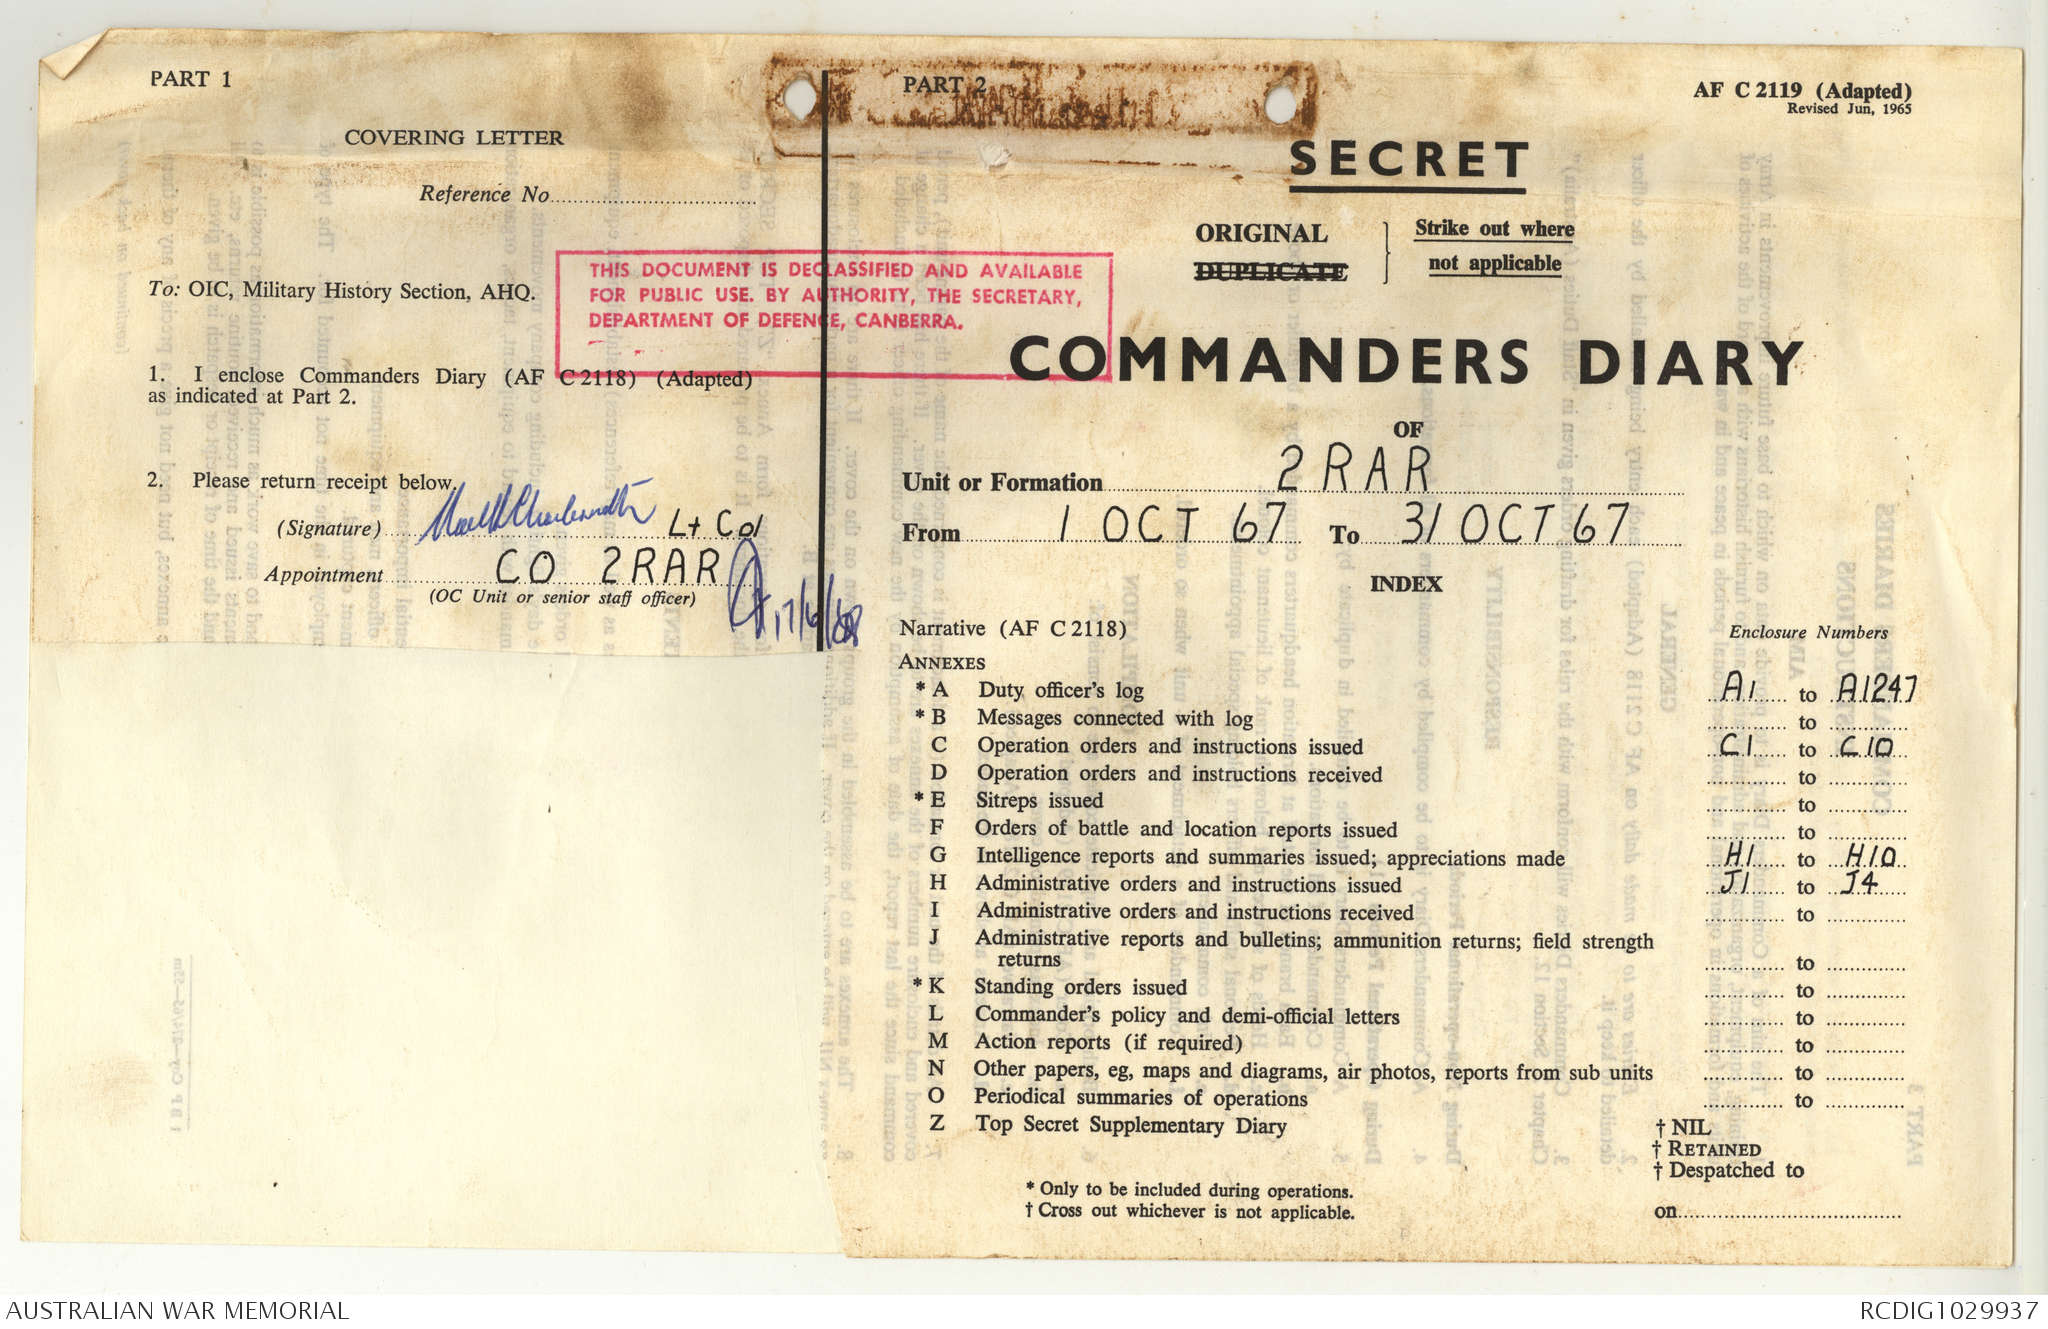 PART 1
COVERING LETTER
Reference No
To: OIC, Military History Section, AHQ.
THIS DOCUMENT IS DECLASSIFIED AND AVAILABLE
FOR PUBLIC USE. BY AUTHORITY, THE SECRETARY,
DEPARTMENT OF DEFENCE, CANBERRA.
1. I enclose Commanders Diary (AF C 2118) (Adapted)
as indicated at Part 2.
2. Please return receipt below.
(Signature) Lt Col
Appointment CO 2RAR
(OC Unit or senior staff officer)
17/6/68
PART 2
AF C 2119 (Adapted)
Revised Jun, 1965
SECRET
ORIGINAL
DUPLICATE
Strike out where
not applicable
COMMANDERS DIARY
OF
Unit or Formation 2 RAR
From 1 OCT 67 To 31 OCT 67
INDEX
Narrative (AF C 2118)
Enclosure Numbers
ANNEXES
* A Duty officer's log A1 to A1247
* B Messages connected with log to
C Operation orders and instructions issued C1 to C10
D Operation orders and instructions received to
* E Sitreps issued to
F Orders of battle and location reports issued to
G Intelligence reports and summaries issued; appreciations made H1 to H10
H Administrative orders and instructions issued J1 to J4
I Administrative orders and instructions received to
J Administrative reports and bulletins; ammunition returns; field strength
returns to
* K Standing orders issued to
L Commander's policy and demi-official letters to
M Action reports (if required) to
N Other papers, eg, maps and diagrams, air photos, reports from sub units to
O Periodical summaries of operations to
Z Top Secret Supplementary Diary
† NIL
† RETAINED
† Despatched to
on
* Only to be included during operations.
† Cross out whichever is not applicable.
AUSTRALIAN WAR MEMORIAL
RCDIG1029937